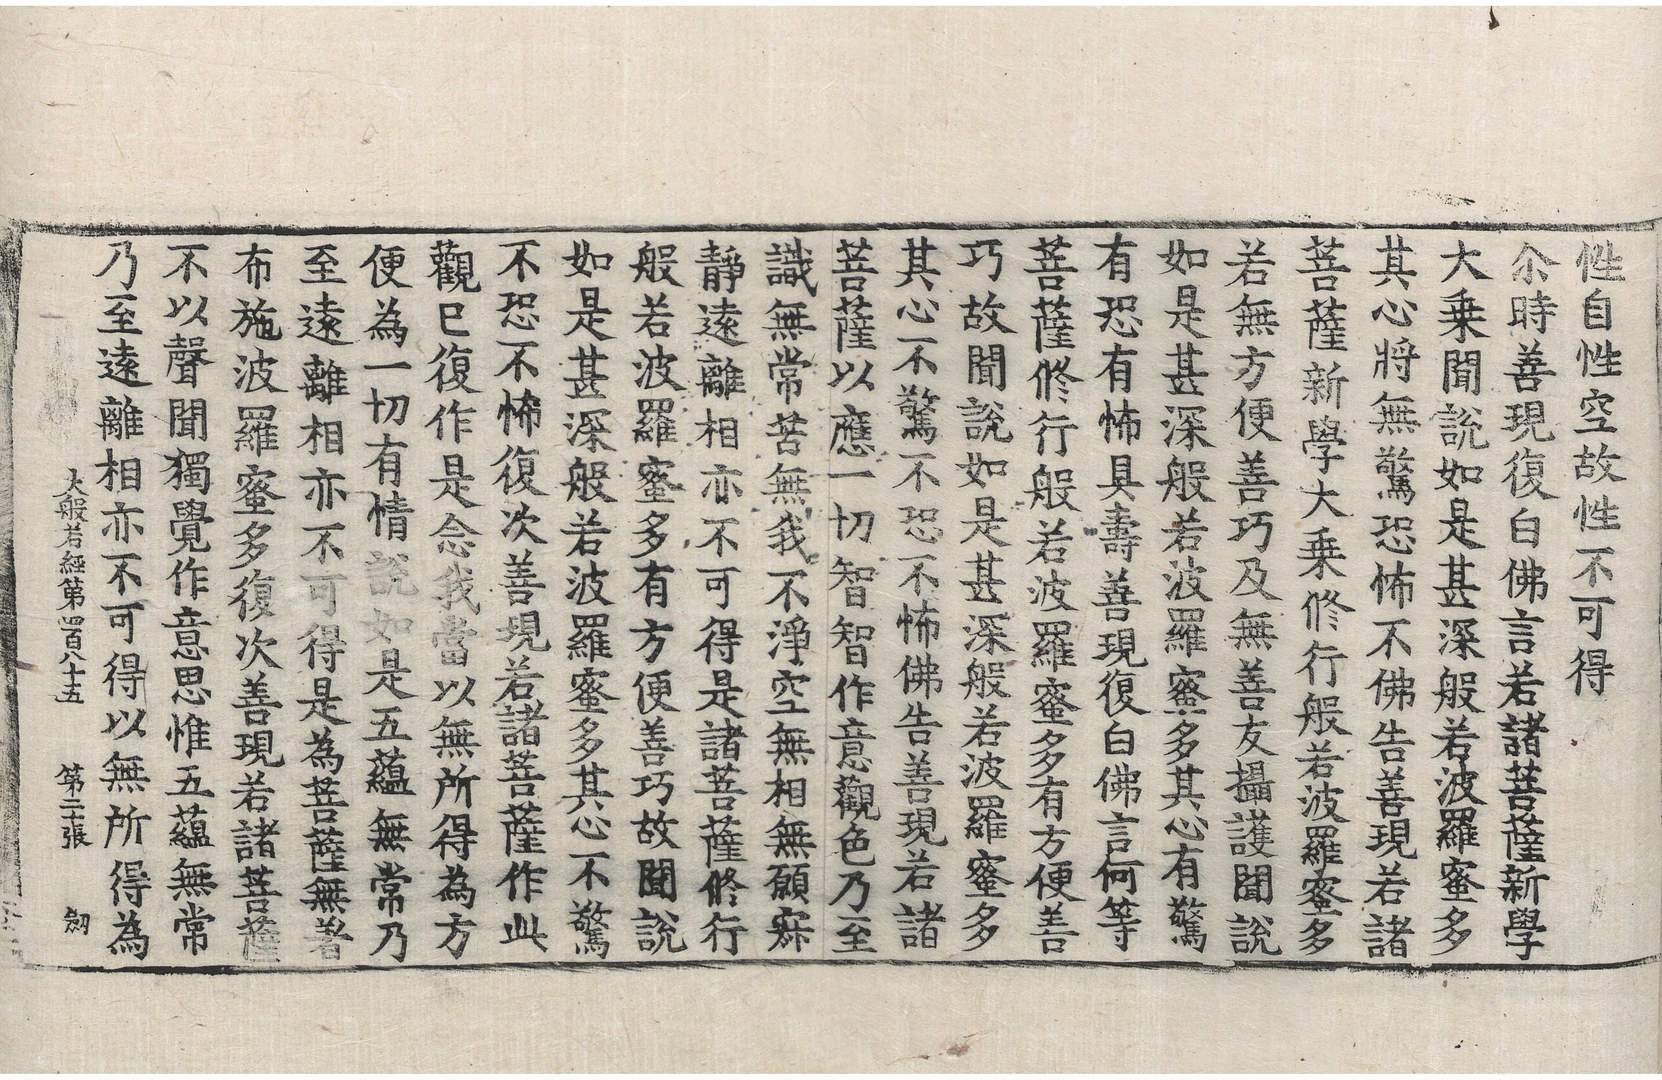 性自性空故性不可得
尒時善現復白佛言若諸菩薩新學
大乗聞說如是甚深般若波羅蜜多
其心將無驚恐怖不佛告善現若諸
菩薩新學大乗修行般若波羅蜜多
若無方便善巧及無善友攝護聞說
如是甚深般若波羅蜜多其心有驚
有恐有怖具壽善現復白佛言何等
菩薩修行般若波羅蜜多有方便善
巧故聞說如是甚深般若波羅蜜多
其心不驚不恐不怖佛告善現若諸
菩薩以應一切智智作意觀色乃至
識無常苦無我不淨空無相無願寂
靜遠離相亦不可得是諸菩薩修行
般若波羅蜜多有方便善巧故聞說
如是甚深般若波羅蜜多其心不驚
不恐不怖復次善現若諸菩薩作此
觀已復作是念我當以無所得為方
便為一切有情說如是五蘊無常乃
至遠離相亦不可得是為菩薩無著
布施波羅蜜多復次善現若諸菩薩
不以聲聞獨覺作意思惟五蘊無常
乃至遠離相亦不可得以無所得為
大般若經第四百八十五 第二十張 劒